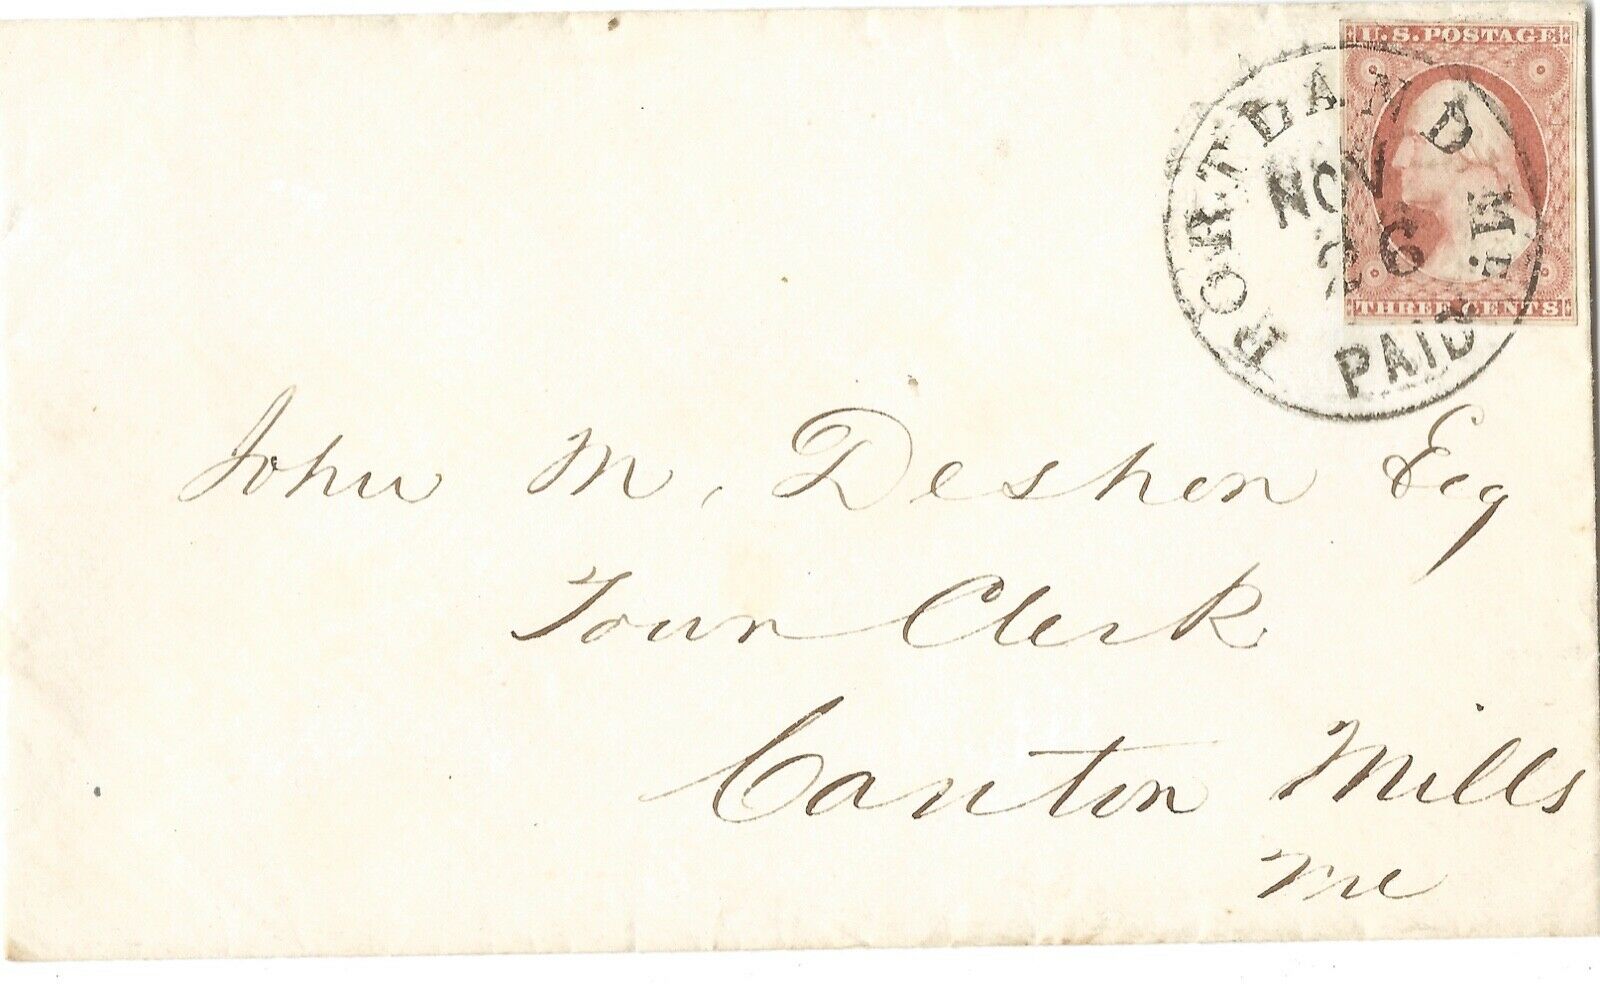 U.S. POSTAGE
PORTLAND Me.
NOV
26
PAID
THREE CENTS
John M. Deshon Esq
Town Clerk
Canton Mills
Me